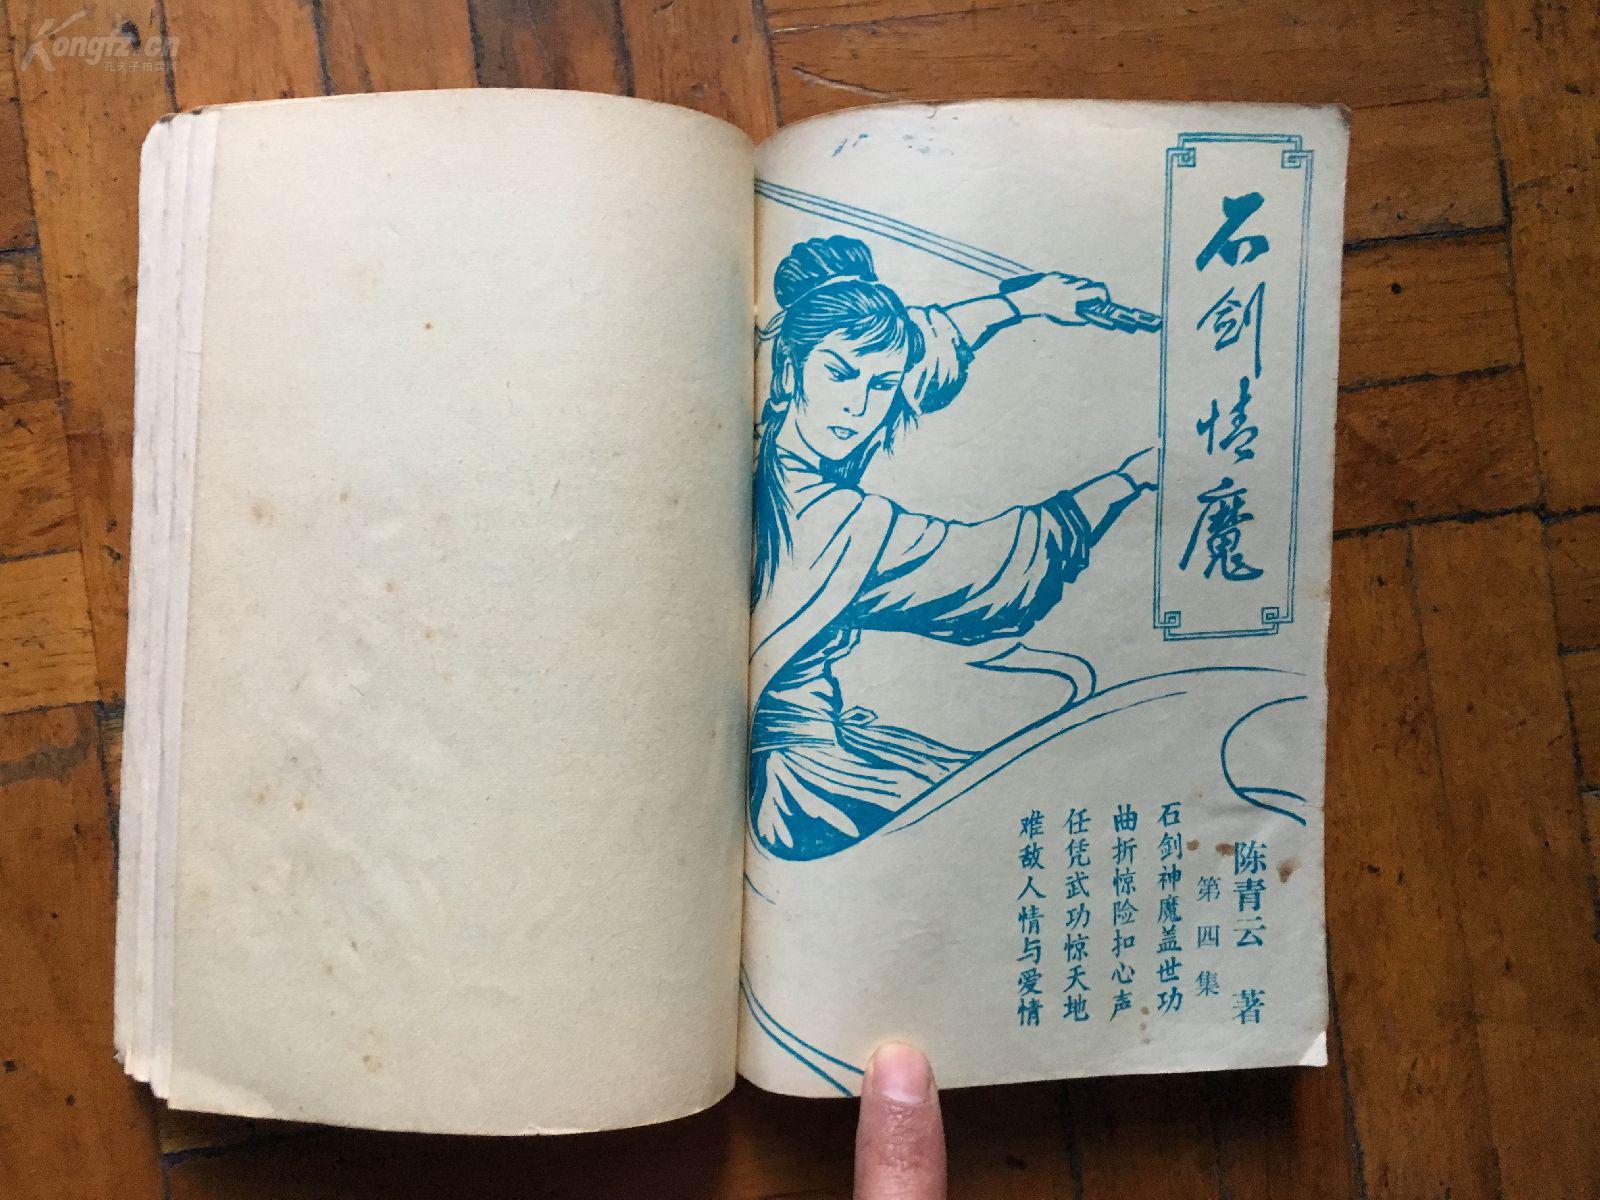 Kongfz.cn
孔夫子拍卖网
石剑情魔
陈青云 著
第四集
石剑神魔盖世功
曲折惊险扣心声
任凭武功惊天地
难敌人情与爱情